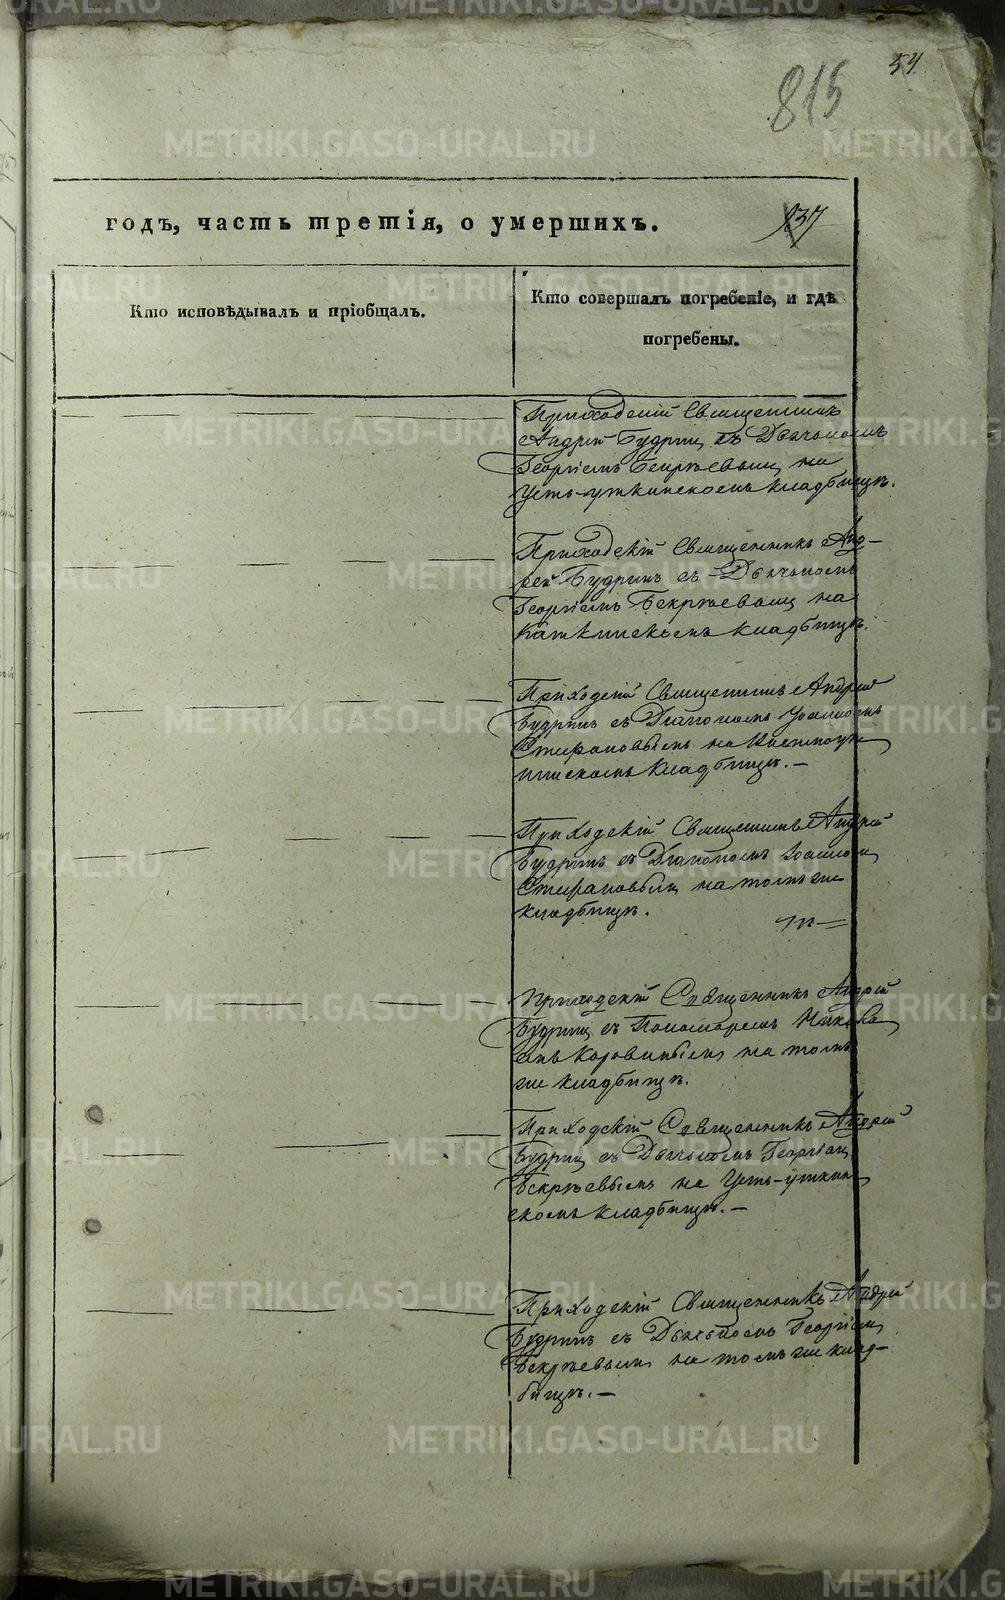 54
815
годъ, часть третія, о умершихъ.
137
Кто исповѣдывалъ и пріобщалъ.
Кто совершалъ погребеніе, и гдѣ
погребены.
Приходскій Священникъ
Андрей Будринъ съ Дьячкомъ
Георгіемъ Бекрѣевымъ на
Усть-уткинскомъ кладбищѣ.
Приходскій Священникъ Анд-
рей Будринъ съ Дьячкомъ
Георгіемъ Бекрѣевымъ на
кладбищѣ.
Приходскій Священникъ Андрей
Будринъ съ Діакономъ Іоанномъ
на
кладбищѣ.-
Приходскій Священникъ Андрей
Будринъ съ Діакономъ Іоанномъ
на томъ же
кладбищѣ.
Приходскій Священникъ Андрей
Будринъ съ Пономаремъ
Коровинымъ на томъ
же кладбищѣ.
Приходскій Священникъ Андрей
Будринъ съ Дьячкомъ Георгіемъ
Бекрѣевымъ на Усть-уткин
скомъ кладбищѣ.-
Приходскій Священникъ Андрей
Будринъ съ Дьячкомъ Георгіемъ
Бекрѣевымъ на томъ же клад-
бищѣ.-
METRIKI.GASO-URAL.RU